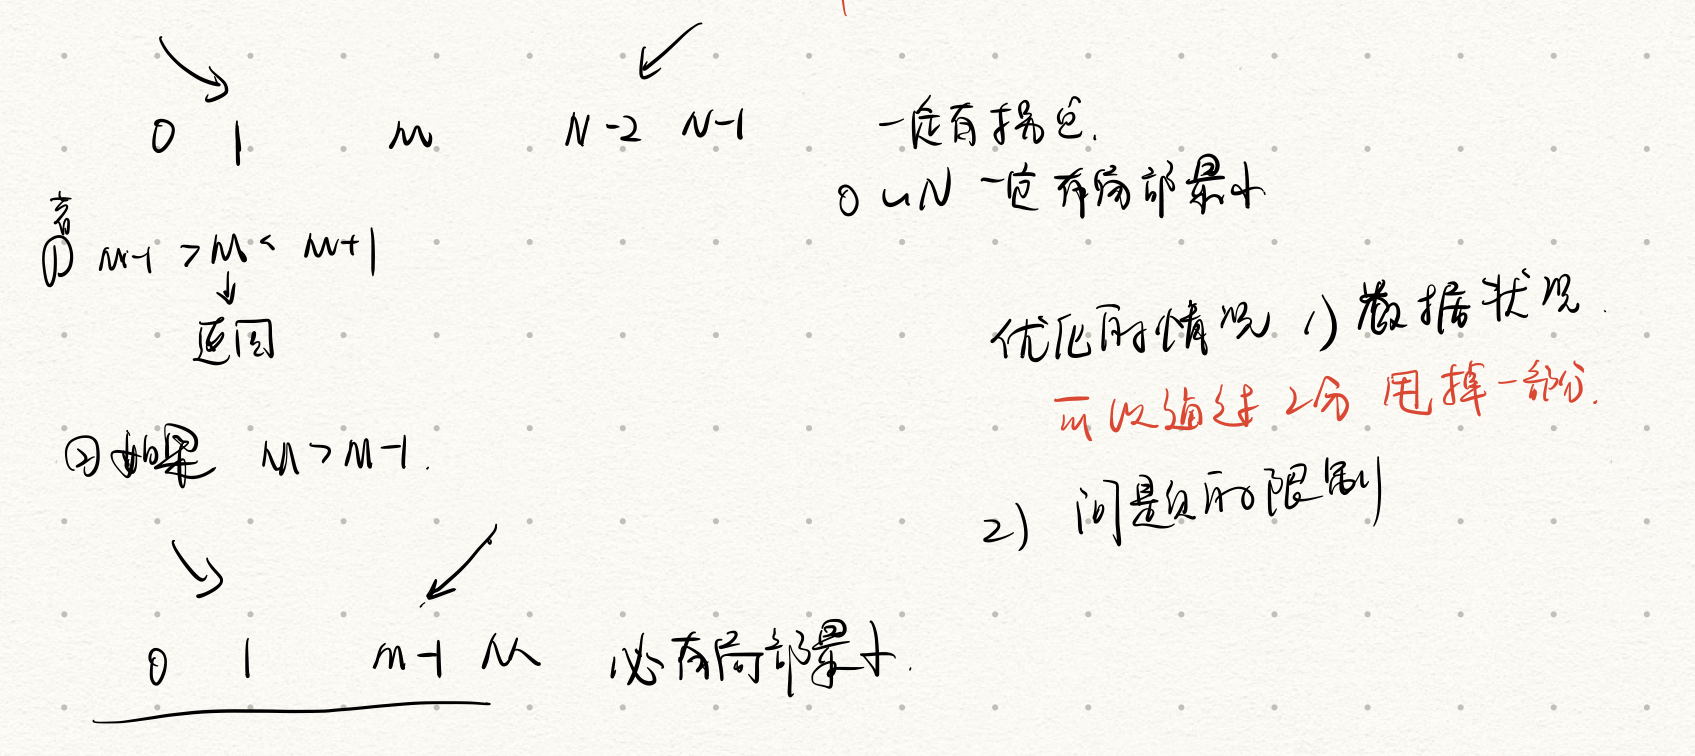 0 1 m N-2 N-1 一定有拐点.
0 ~ N 一定有局部最小
若
① m-1 > m < m+1
返回
优化的情况 1) 数据状况.
可以通过 2分 甩掉一部分.
② 如果 m > m-1.
2) 问题的限制
0 1 m-1 m 必有局部最小.